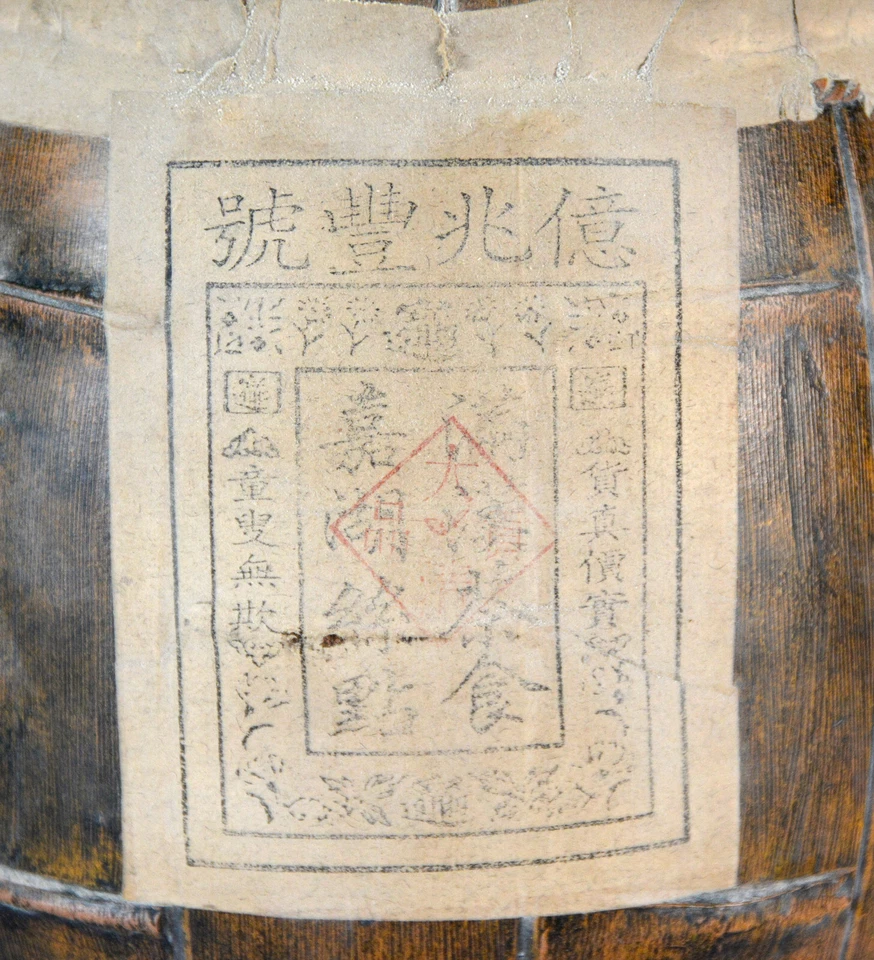 億兆豐號
貨真價實
滿漢茶食
嘉湖細點
童叟無欺